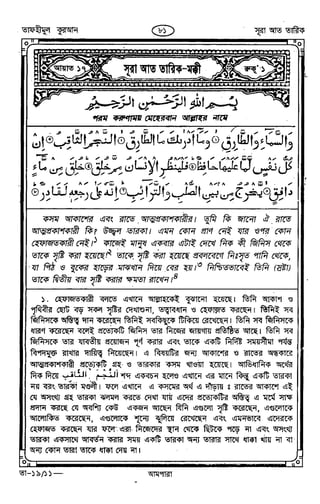 তাফহীমুল কুরআন
৮১
সূরা আত তারিক
আয়াত ১৭
সূরা আত তারিক-মক্কী
রুকু' ১
بِسْمِ اللّٰهِ الرَّحْمٰنِ الرَّحِيْمِ
পরম করুণাময় মেহেরবান আল্লাহর নামে
وَالسَّمَاءِ وَالطَّارِقِ ۝ وَمَا أَدْرٰىكَ مَا الطَّارِقُ ۝ النَّجْمُ الثَّاقِبُ ۝ إِنْ
كُلُّ نَفْسٍ لَّمَّا عَلَيْهَا حَافِظٌ ۝ فَلْيَنْظُرِ الْإِنْسَانُ مِمَّ خُلِقَ ۝ خُلِقَ مِنْ مَّاءٍ
دَافِقٍ ۝ يَّخْرُجُ مِنْ بَيْنِ الصُّلْبِ وَالتَّرَائِبِ ۝ إِنَّهُ عَلٰى رَجْعِهِ لَقَادِرٌ ۝
কসম আকাশের এবং রাতে আত্মপ্রকাশকারীর। তুমি কি জানো ঐ রাতে
আত্মপ্রকাশকারী কি? উজ্জ্বল তারকা। এমন কোন প্রাণ নেই যার ওপর কোন
হেফাজতকারী নেই।১ কাজেই মানুষ একবার এটাই দেখে নিক কী জিনিস থেকে
তাকে সৃষ্টি করা হয়েছে।২ তাকে সৃষ্টি করা হয়েছে প্রবলবেগে নিঃসৃত পানি থেকে,
যা পিঠ ও বুকের হাড়ের মাঝখান দিয়ে বের হয়।৩ নিশ্চিতভাবেই তিনি (স্রষ্টা)
তাকে দ্বিতীয় বার সৃষ্টি করার ক্ষমতা রাখেন।৪
১. হেফাজতকারী বলতে এখানে আল্লাহকেই বুঝানো হয়েছে। তিনি আকাশ ও
পৃথিবীর ছোট বড় সকল সৃষ্টির দেখাশুনা, তত্ত্বাবধান ও হেফাজত করছেন। তিনিই সব
জিনিসকে অস্তিত্ব দান করেছেন তিনিই সবকিছুকে টিকিয়ে রেখেছেন। তিনি সব জিনিসকে
ধারণ করেছেন বলেই প্রত্যেকটি জিনিস তার নিজের জায়গায় প্রতিষ্ঠিত আছে। তিনি সব
জিনিসকে তার যাবতীয় প্রয়োজন পূর্ণ করার এবং তাকে একটি নির্দিষ্ট সময়সীমা পর্যন্ত
বিপদমুক্ত রাখার দায়িত্ব নিয়েছেন। এ বিষয়টির জন্য আকাশের ও রাতের অন্ধকারে
আত্মপ্রকাশকারী প্রত্যেকটি গ্রহ ও তারকার কসম খাওয়া হয়েছে। আভিধানিক অর্থের
দিক দিয়ে النَّجْمُ الثَّاقِبُ শব্দ একবচন হলেও এখানে এর মানে কিন্তু একটি তারকা
নয় বরং তারকা মণ্ডলী। ফলে এখানে এ কসমের অর্থ এ দাঁড়ায় ঃ রাতের আকাশে এই
যে অসংখ্য গ্রহ তারকা ঝলমল করতে দেখা যায় এদের প্রত্যেকটির অস্তিত্ব এ মর্মে সাক্ষ
প্রদান করছে যে অবশ্যি কেউ একজন আছেন যিনি এগুলো সৃষ্টি করেছেন, এগুলোকে
আলোকিত করেছেন, এগুলোকে শূন্যে ঝুলিয়ে রেখেছেন এবং এমনভাবে এদেরকে
হেফাজত করছেন যার ফলে এরা নিজেদের স্থান থেকে ছিটকে পড়ে না এবং অসংখ্য
তারকা একসাথে আবর্তন করার সময় একটি তারকা অন্য তারার সাথে ধাক্কা খায় না বা
অন্য কোন তারা তাকে ধাক্কা দেয় না।
তা-১৯/১১—
আমপারা